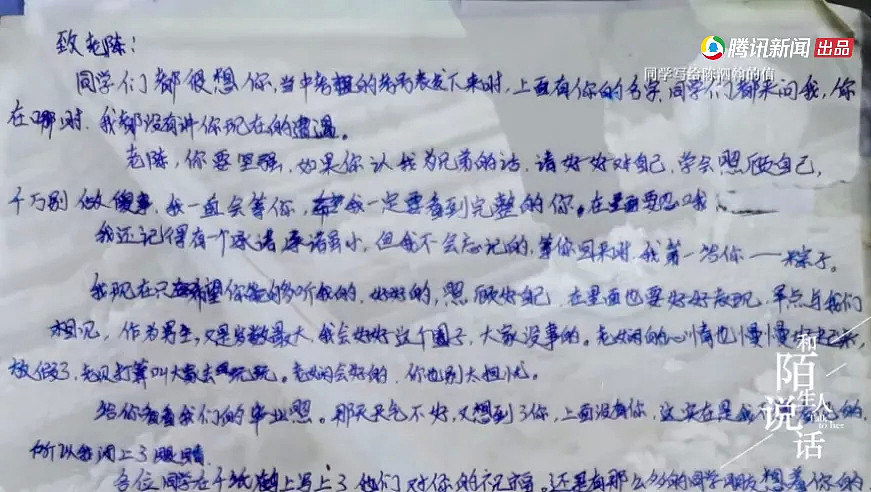 腾讯新闻 出品
同学写给陈泗翰的信
致老陈：
同学们都很想你，当中考粗的考号表发下来时，上面有你的名字，同学们都来问我，你
在哪时，我都没有讲你现在的遭遇。
老陈，你要坚强，如果你认我为兄弟的话，请好好对自己，学会照顾自己，
千万别做傻事，我一直会等你，我一定要看到完整的你。在里面要忍哦
我还记得有一个承诺，承诺虽小，但我不会忘记的，等你回来时，我第一给你——粽子。
我现在只希望你能够听我的，好好的，照顾好自己，在里面也要好好表现，早点与我们
相见，作为男生，又是岁数最大，我会好好这个圈子，大家没事的。老妈的心情也慢慢好起来，
放假了，老贝打算叫大家去玩玩。老妈会好的，你也别太担忧。
给你看看我们的毕业照。那天天气不好，又想到了你，上面没有你，这实在是我
所以我闭上了眼睛
各位同学在千纸鹤上写上了他们对你的祝福。还是有那么多的同学朋友想着你的
和陌生人说话
Talk to her